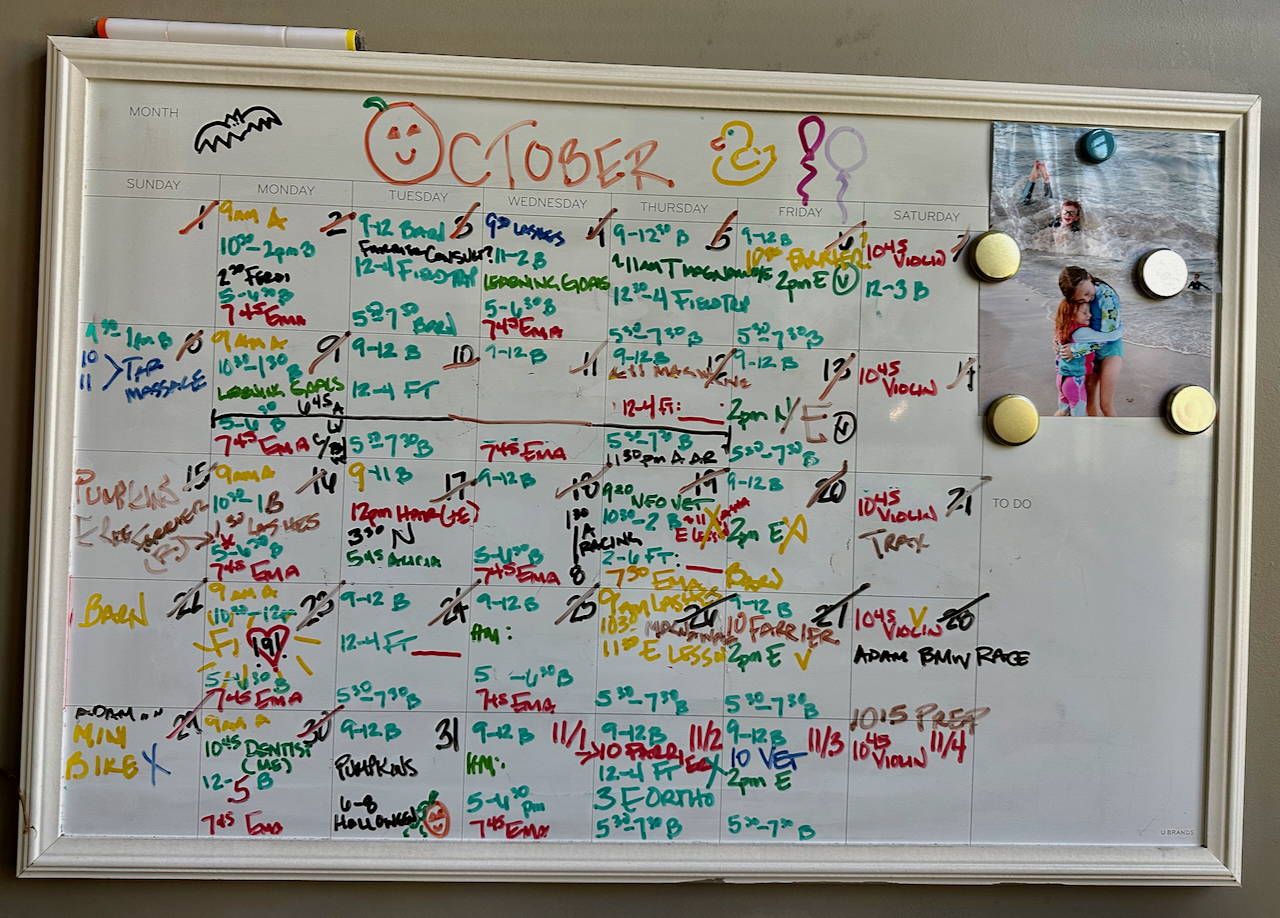 MONTH
OCTOBER
SUNDAY
MONDAY
TUESDAY
WEDNESDAY
THURSDAY
FRIDAY
SATURDAY
1
2
9AM A
10³⁰-2pm B
2³⁰
5-6³⁰ B
7⁴⁵ EMA
3
9-12 BARN
FARRIER CONSULT?
12-4 FIELDTRIP
5³⁰-7³⁰ BARN
4
9³⁰ LASHES
11-2 B
LEARNING GOALS
5-6³⁰ B
7⁴⁵ EMA
5
9-12³⁰ B
11AM
12³⁰-4 FIELDTRIP
5³⁰-7³⁰ B
6
9-12 B
FARRIER?
2pm E V
5³⁰-7³⁰ B
7
10⁴⁵ VIOLIN
12-3 B
8
9³⁰-1pm B
10
11 > TAR
MASSAGE
9
9AM A
10³⁰-1³⁰ B
LEARNING GOALS
6⁴⁵ A
5-6³⁰ B
7⁴⁵ EMA
10
9-12 B
12-4 FT
5³⁰-7³⁰ B
11
9-12 B
7⁴⁵ EMA
12
9-12 B
12-4 FT:
5³⁰-7³⁰ B
11³⁰ pm A AR
13
9-12 B
2pm N/E V
5³⁰-7³⁰ B
14
10⁴⁵ VIOLIN
15
PUMPKINS
16
9AM A
10³⁰-1 B
1³⁰ LASHES
5-6³⁰ B
7⁴⁵ EMA
17
9-11 B
12pm HAIR (JE)
3³⁰ N
5⁴⁵
18
9-12 B
1³⁰
A
RACING
8
5-6³⁰ B
7⁴⁵ EMA
19
9²⁰ NEO VET
10³⁰-2 B
2-6 FT:
7³⁰ EMA
20
9-12 B
2pm E
BARN
21
10⁴⁵ VIOLIN
TRAX
BARN
23
9AM A
10³⁰-12
19!
5-6³⁰ B
7⁴⁵ EMA
24
9-12 B
12-4 FT
5³⁰-7³⁰ B
25
9-12 B
HM:
5-6³⁰ B
7⁴⁵ EMA
9AM LASHES
10³⁰
11³⁰ E LESSON
5³⁰-7³⁰ B
9-12 B
10 FARRIER
2pm E V
5³⁰-7³⁰ B
28
10⁴⁵ VIOLIN
ADAM BMW RACE
29
MINI
BIKE X
30
9AM A
10⁴⁵ DENTIST
(ME)
12-5 B
7⁴⁵ EMA
31
9-12 B
PUMPKINS
6-8
HALLOWEEN
11/1
9-12 B
HM:
5-6³⁰ pm
7⁴⁵ EMA
11/2
9-12 B
10 FARRIER
12-4 FT
3 E ORTHO
5³⁰-7³⁰ B
11/3
9-12 B
10 VET
2pm E
5³⁰-7³⁰ B
10¹⁵ PREP
10⁴⁵ VIOLIN
11/4
TO DO
U BRANDS